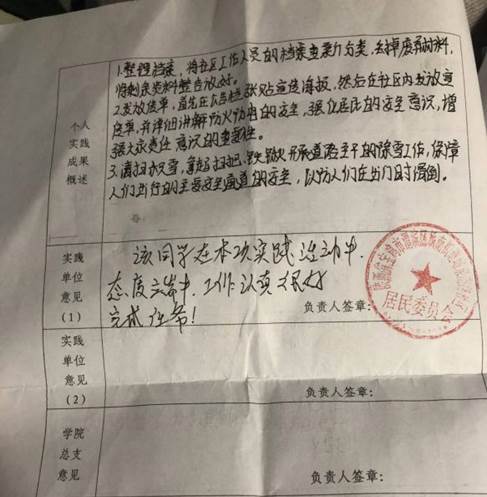 个人
实践
成果
概述
1.整理档案,将社区工作人员的档案重新分类,去掉废弃材料,
将剩余类料整合放好。
2.发放传单,首先在公告栏张贴宣传海报,然后在社区内发放宣
传单,并详细讲解防火防盗的安全,强化居民的安全意识,增
强火灾责任意识的重要性。
3.清扫积雪,拿起扫把、铁锹开展道路主干的除雪工作,保障
人们出行的主要安全通道的安全,以防人们在出门时滑倒。
实践
单位
意见
(1)
该同学在本次实践活动中,
态度 工作认真 很好
完成任务!
负责人签章:
居民委员会
实践
单位
意见
(2)
负责人签章:
学院
总支
意见
负责人签章: